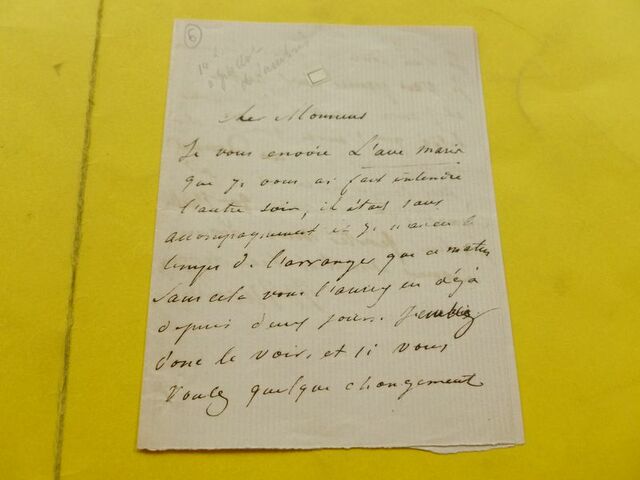 6
Cher Monsieur
Je vous envoie L'ave maria
que je vous ai fait entendre
l'autre soir, il était sans
accompagnement et je n'ai eu le
temps de l'arranger que ce matin
sans cela vous l'auriez eu déjà
depuis deux jours. Veuillez
donc le voir, et si vous
voulez quelque changement